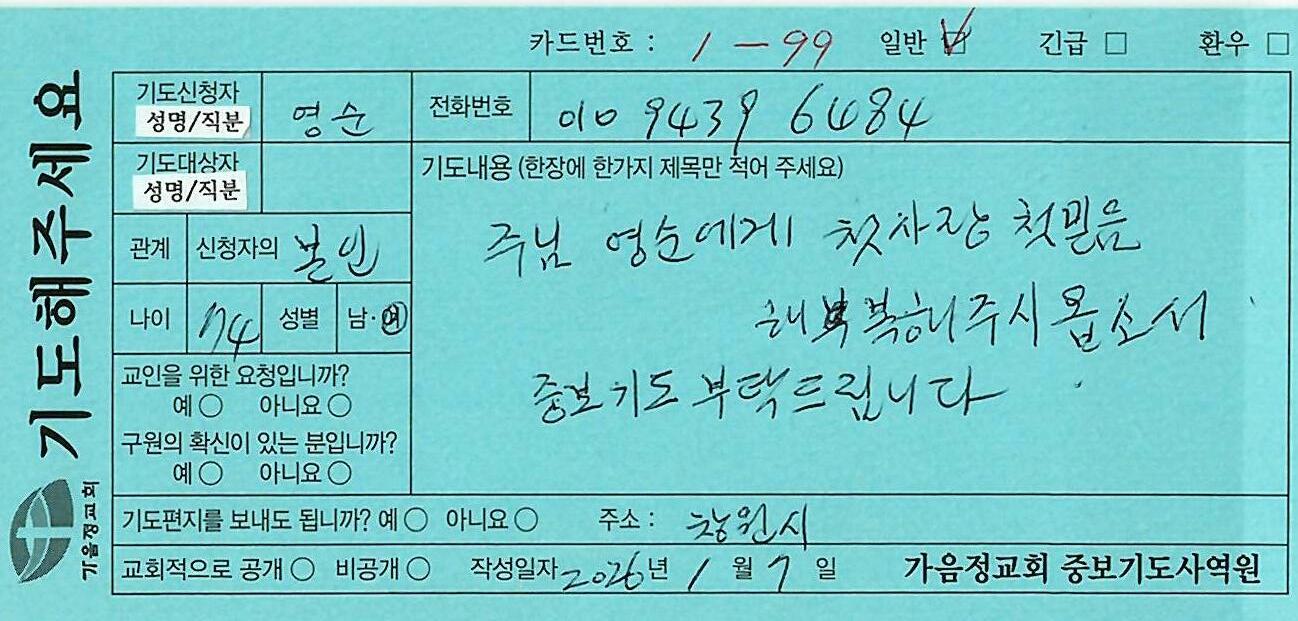 기도해주세요
가음정교회
카드번호 : 1 - 99 일반 ☑ 긴급 □ 환우 □
기도신청자 성명/직분 영순 전화번호 010 9439 6484
기도대상자 성명/직분
기도내용 (한장에 한가지 제목만 적어 주세요)
주님 영순에게 첫사랑 첫믿음
회복해주시옵소서
중보기도 부탁드립니다
관계 신청자의 본인
나이 74 성별 남·여
교인을 위한 요청입니까?
예○ 아니요○
구원의 확신이 있는 분입니까?
예○ 아니요○
기도편지를 보내도 됩니까? 예○ 아니요○ 주소 : 창원시
교회적으로 공개○ 비공개○ 작성일자 2026년 1월 7일 가음정교회 중보기도사역원